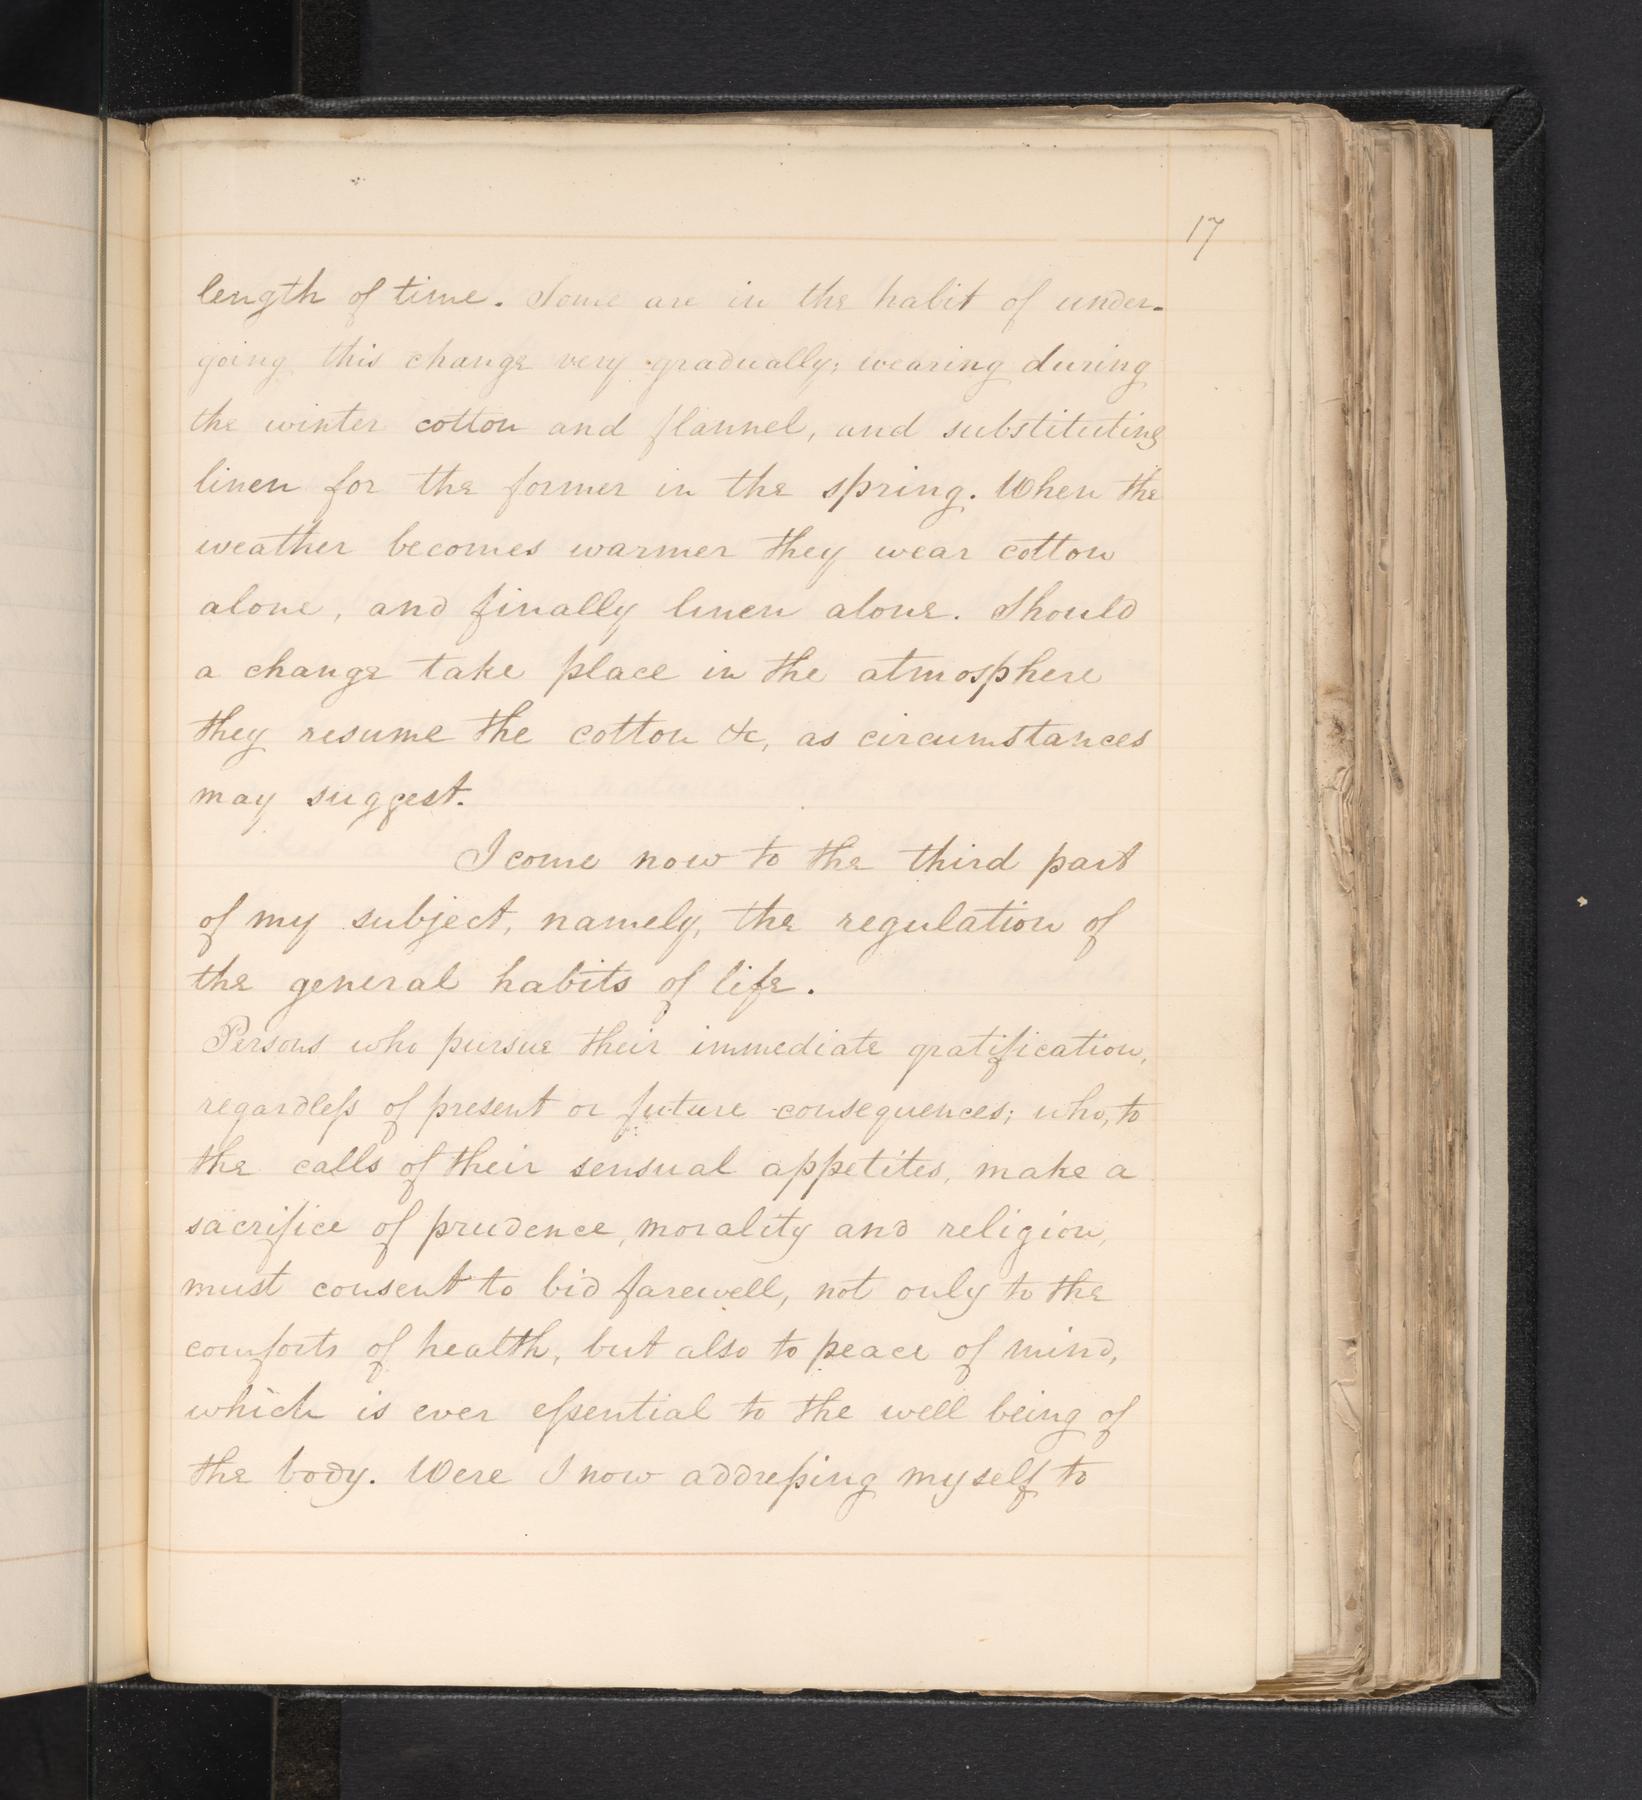 17
length of time. Some are in the habit of under-
going this change very gradually; wearing during
the winter cotton and flannel, and substituting
linen for the former in the spring. When the
weather becomes warmer they wear cotton
alone, and finally linen alone. Should
a change take place in the atmosphere
they resume the cotton &c, as circumstances
may suggest.
I come now to the third part
of my subject, namely, the regulation of
the general habits of life.
Persons who pursue their immediate gratification,
regardleſs of present or future consequences; who, to
the calls of their sensual appetites, make a
sacrifice of prudence, morality and religion,
must consent to bid farewell, not only to the
comforts of health, but also to peace of mind,
which is ever eſsential to the well being of
the body. Were I now addreſsing myself to